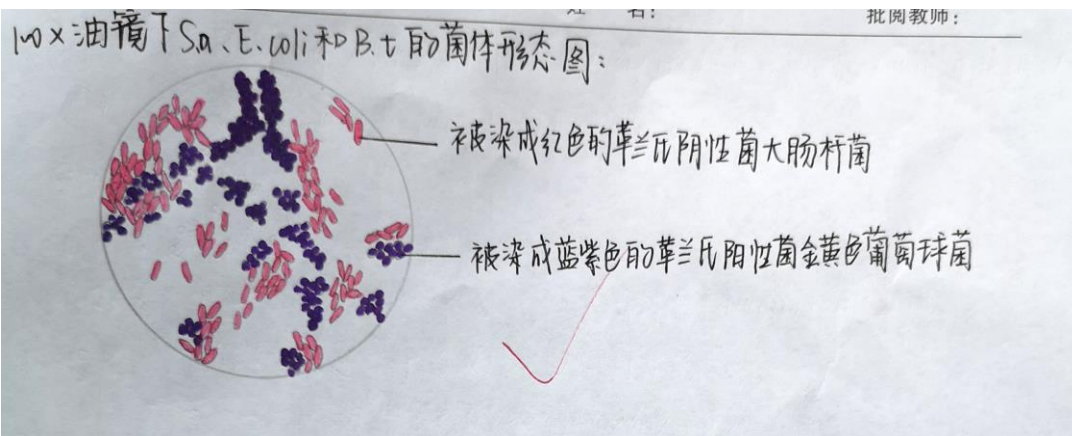 批阅教师：
100×油镜下S.a、E.coli和B.t的菌体形态图：
被染成红色的革兰氏阴性菌大肠杆菌
被染成蓝紫色的革兰氏阳性菌金黄色葡萄球菌